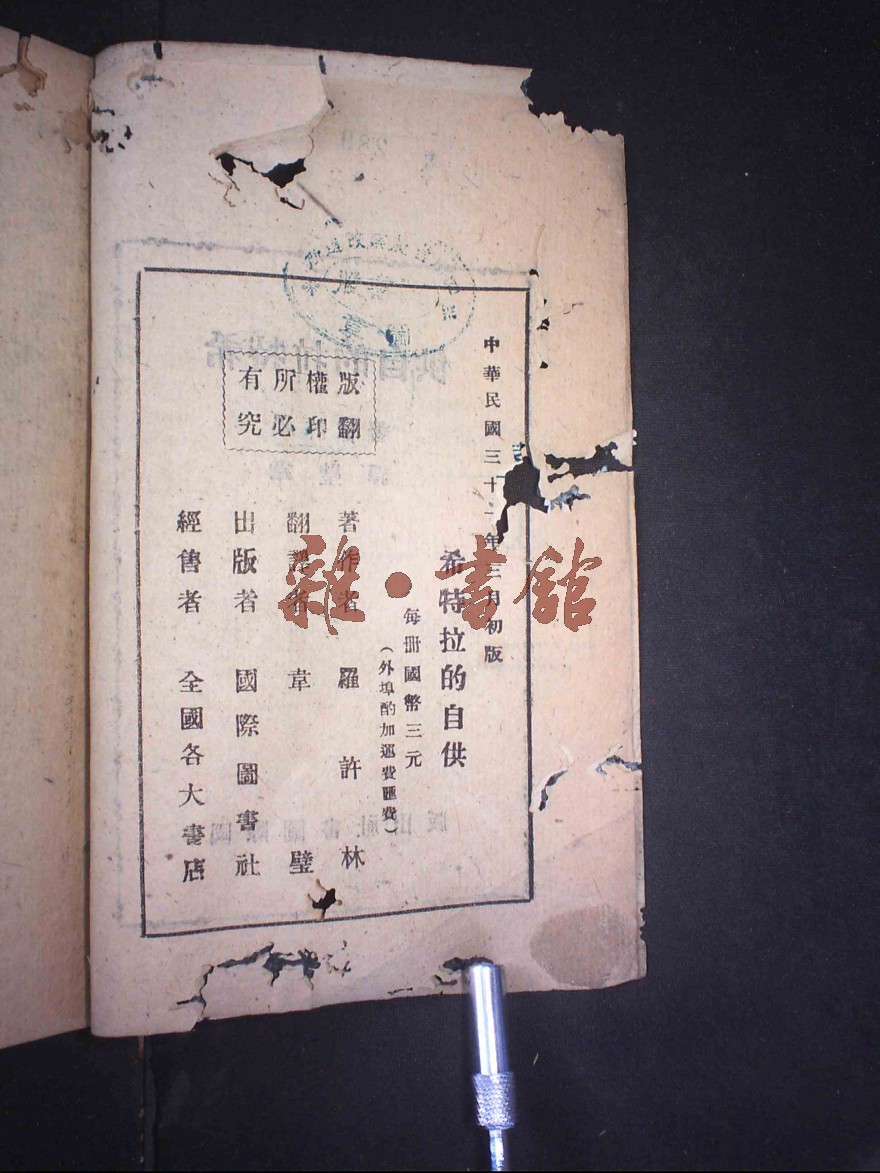 中華民國三十一年三月初版
希特拉的自供
每册國幣三元
（外埠酌加運費匯費）
著作者 羅許林
翻譯者 韋璧
出版者 國際圖書社
經售者 全國各大書店
版權所有
翻印必究
雜·書館